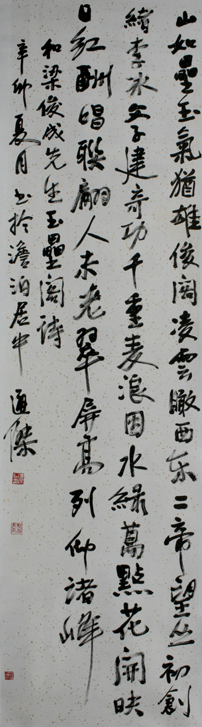 山如壘玉氣猶雄俊阁凌雲瞰西东二帝望丛初創
績李冰父子建奇功千重麦浪因水綠萬點花開映
日紅酬唱聯翩人未老翠屏高列仰諸峰
和梁俊成先生玉壘阁詩
辛卯夏月书於澹泊居中 通傑